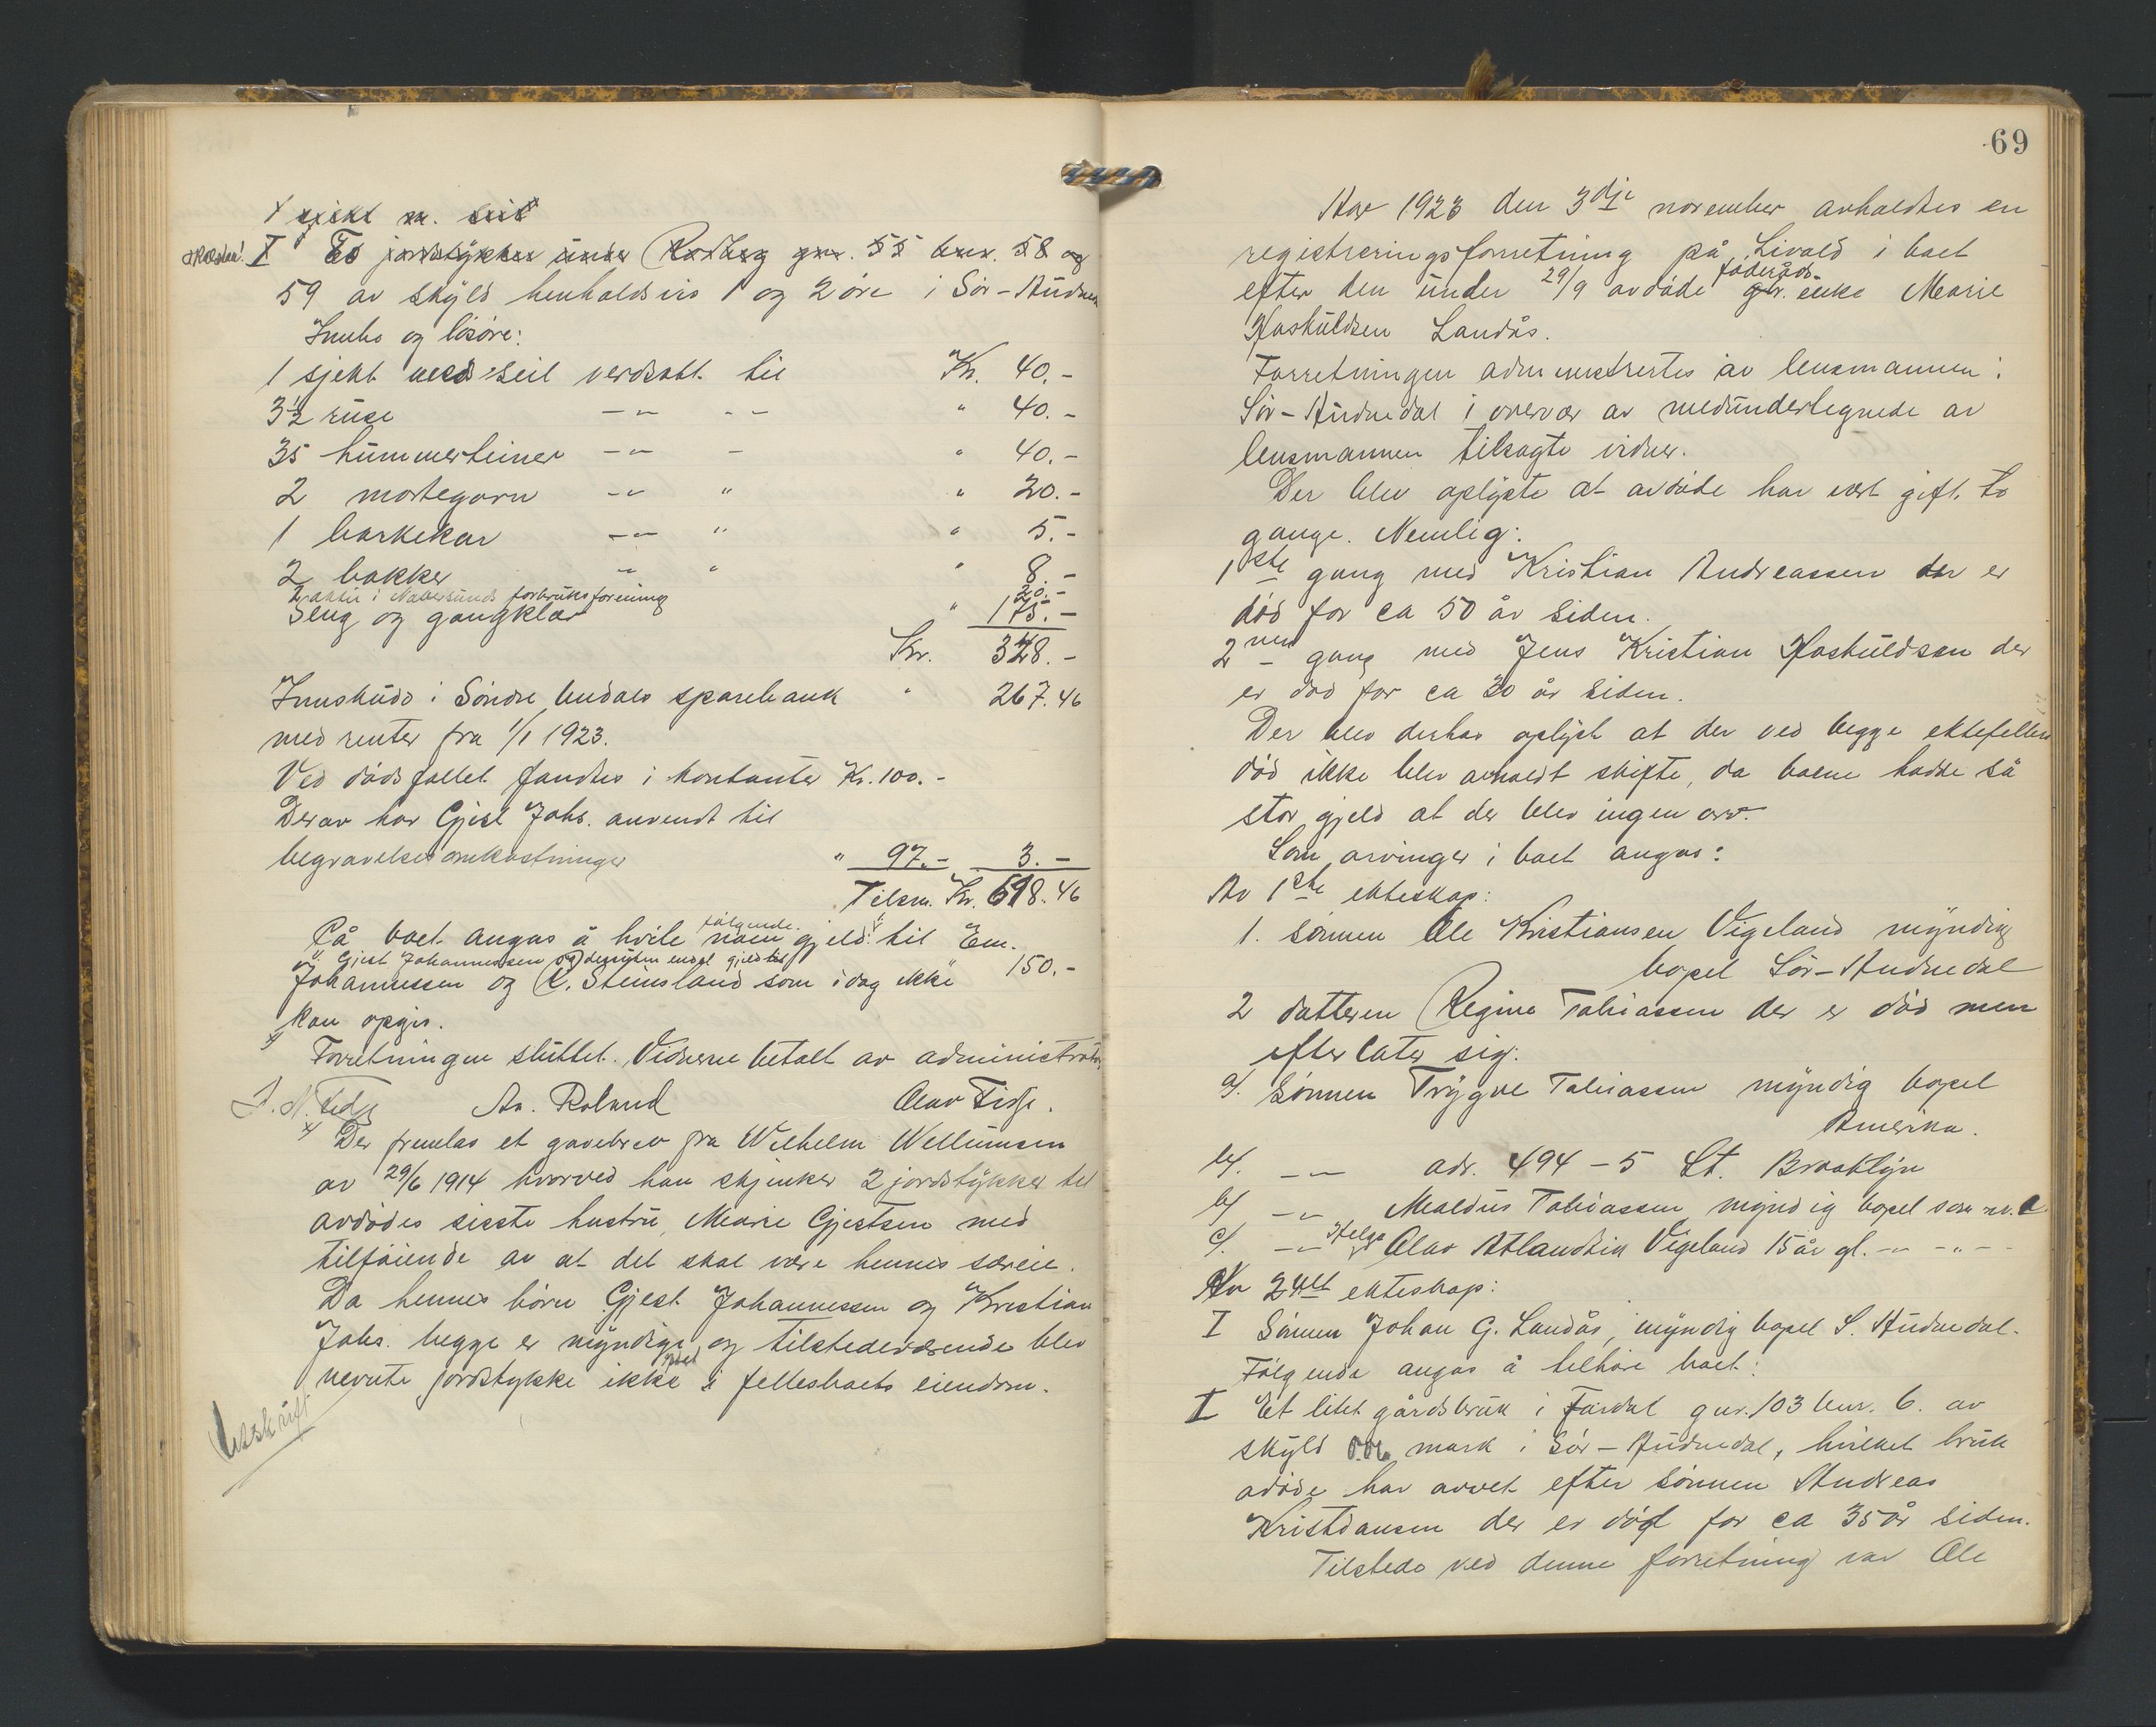 1 sjekt m. seil
I To jordstykker under Rosberg gnr. 55 bnr. 58 og
59 av skyld henholdsvis 1 og 2 øre i Sør-Audnedal
Innbo og løsøre:
1 sjekt med seil verdsatt til Kr. 40.-
3½ ruse -"- -- " 40.-
35 hummerteiner -"- - " 40.-
2 mortegarn -"- " " 20.-
1 barkekar -"- " " 5.-
2 bakker " " " 8.-
aktie i forbruksforening 20.-
Seng og gangklær " 175.-
Kr. 328.-
Innskudd i Søndre Undals sparebank " 267.46
med renter fra 1/1 1923.
Ved dødsfallet fandtes i kontanter Kr. 100.-
Derav har Gjest Johs. anvendt til
begravelsesomkostninger " 97.- 3.-
Tilsm. Kr. 618.46
følgende
På boet angas å hvile noen gjeld: til Em.
Gjest Johannessen og desuten endel gjeld til
Johannessen og K. Steinsland som idag ikke 150.-
kan opgis.
x Forretningen sluttet. Vidnerne betalt av administrator.
An. Roland Olav Fidje.
x) Der fremlas et gavebrev fra Wilhelm Wellumsen
av 29/6 1914 hvorved han skjenker 2 jordstykker til
avdødes sisste hustru, Marie Gjestsen med
tilføiende av at det skal være hennes særeie.
Da hennes børn Gjest Johannessen og Kristian
Johs. begge er myndige og tilstedeværende blev
nevnte jordstykke ikke i fellesboets eiendom.
Utskrift
69
Aar 1923 den 3dje november avholdtes en
registreringsforretning på Livold i boet
føderåds-
efter den under 29/9 avdøde gbr. enke Marie
Haskuldsen Landås.
Forretningen administrertes av lensmannen i
Sør-Audnedal i overvær av medundertegnede av
lensmannen tilsagte vidner.
Der blev oplyste at avdøde har vært gift to
gange. Nemlig:
1ste gang med Kristian Andreassen der er
død for ca 50 år siden.
2nen gang med Jens Kristian Haskuldsen der
er død for ca 30 år siden.
Der blev derhos oplyst at der ved begge ektefellers
død ikke blev avholdt skifte, da boene hadde så
stor gjeld at der blev ingen arv.
Som arvinger i boet angas:
Av 1ste ekteskap:
1. sønnen Ole Kristiansen Vigeland myndig
bopel Sør-Audnedal
2 datteren Regine Tobiassen der er død men
efterlater sig:
a/. Sønnen Trygve Tobiassen myndig bopel
Amerika.
-"- adr. 494-5 St. Brooklyn
b/ -"- Mealdus Tobiassen myndig bopel som nr. a
c/. -"- Helge Olav Atlandsin Vigeland 15 år gl. -"- -"-
Av 2net ekteskap:
I Sønnen Johan G. Landås, myndig bopel S. Audnedal.
Følgende angas å tilhøre boet:
I Et litet gårdsbruk i Fardal gnr. 103 bnr. 6. av
skyld 0.06 mark i Sør-Audnedal, hvilket bruk
adøde har arvet efter sønnen Andreas
Kristiansen der er død for ca 35 år siden.
Tilstede ved denne forretning var Ole